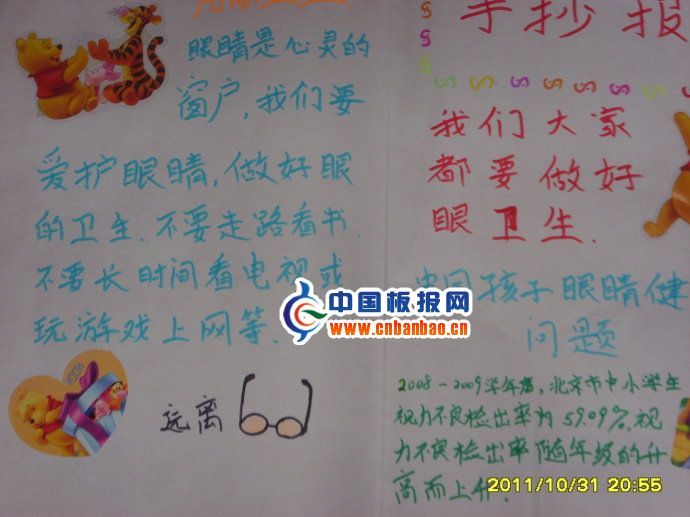 眼睛是心灵的
窗户,我们要
爱护眼睛,做好眼
的卫生.不要走路看书
不要长时间看电视或
玩游戏上网等.
远离
手抄报
我们大家
都要做好
眼卫生.
中国孩子眼睛健
问题
2008-2009学年度,北京市中小学生
视力不良检出率为59.09%.视
力不良检出率随年级的升
高而上升.
中国板报网
www.cnbanbao.cn
2011/10/31 20:55